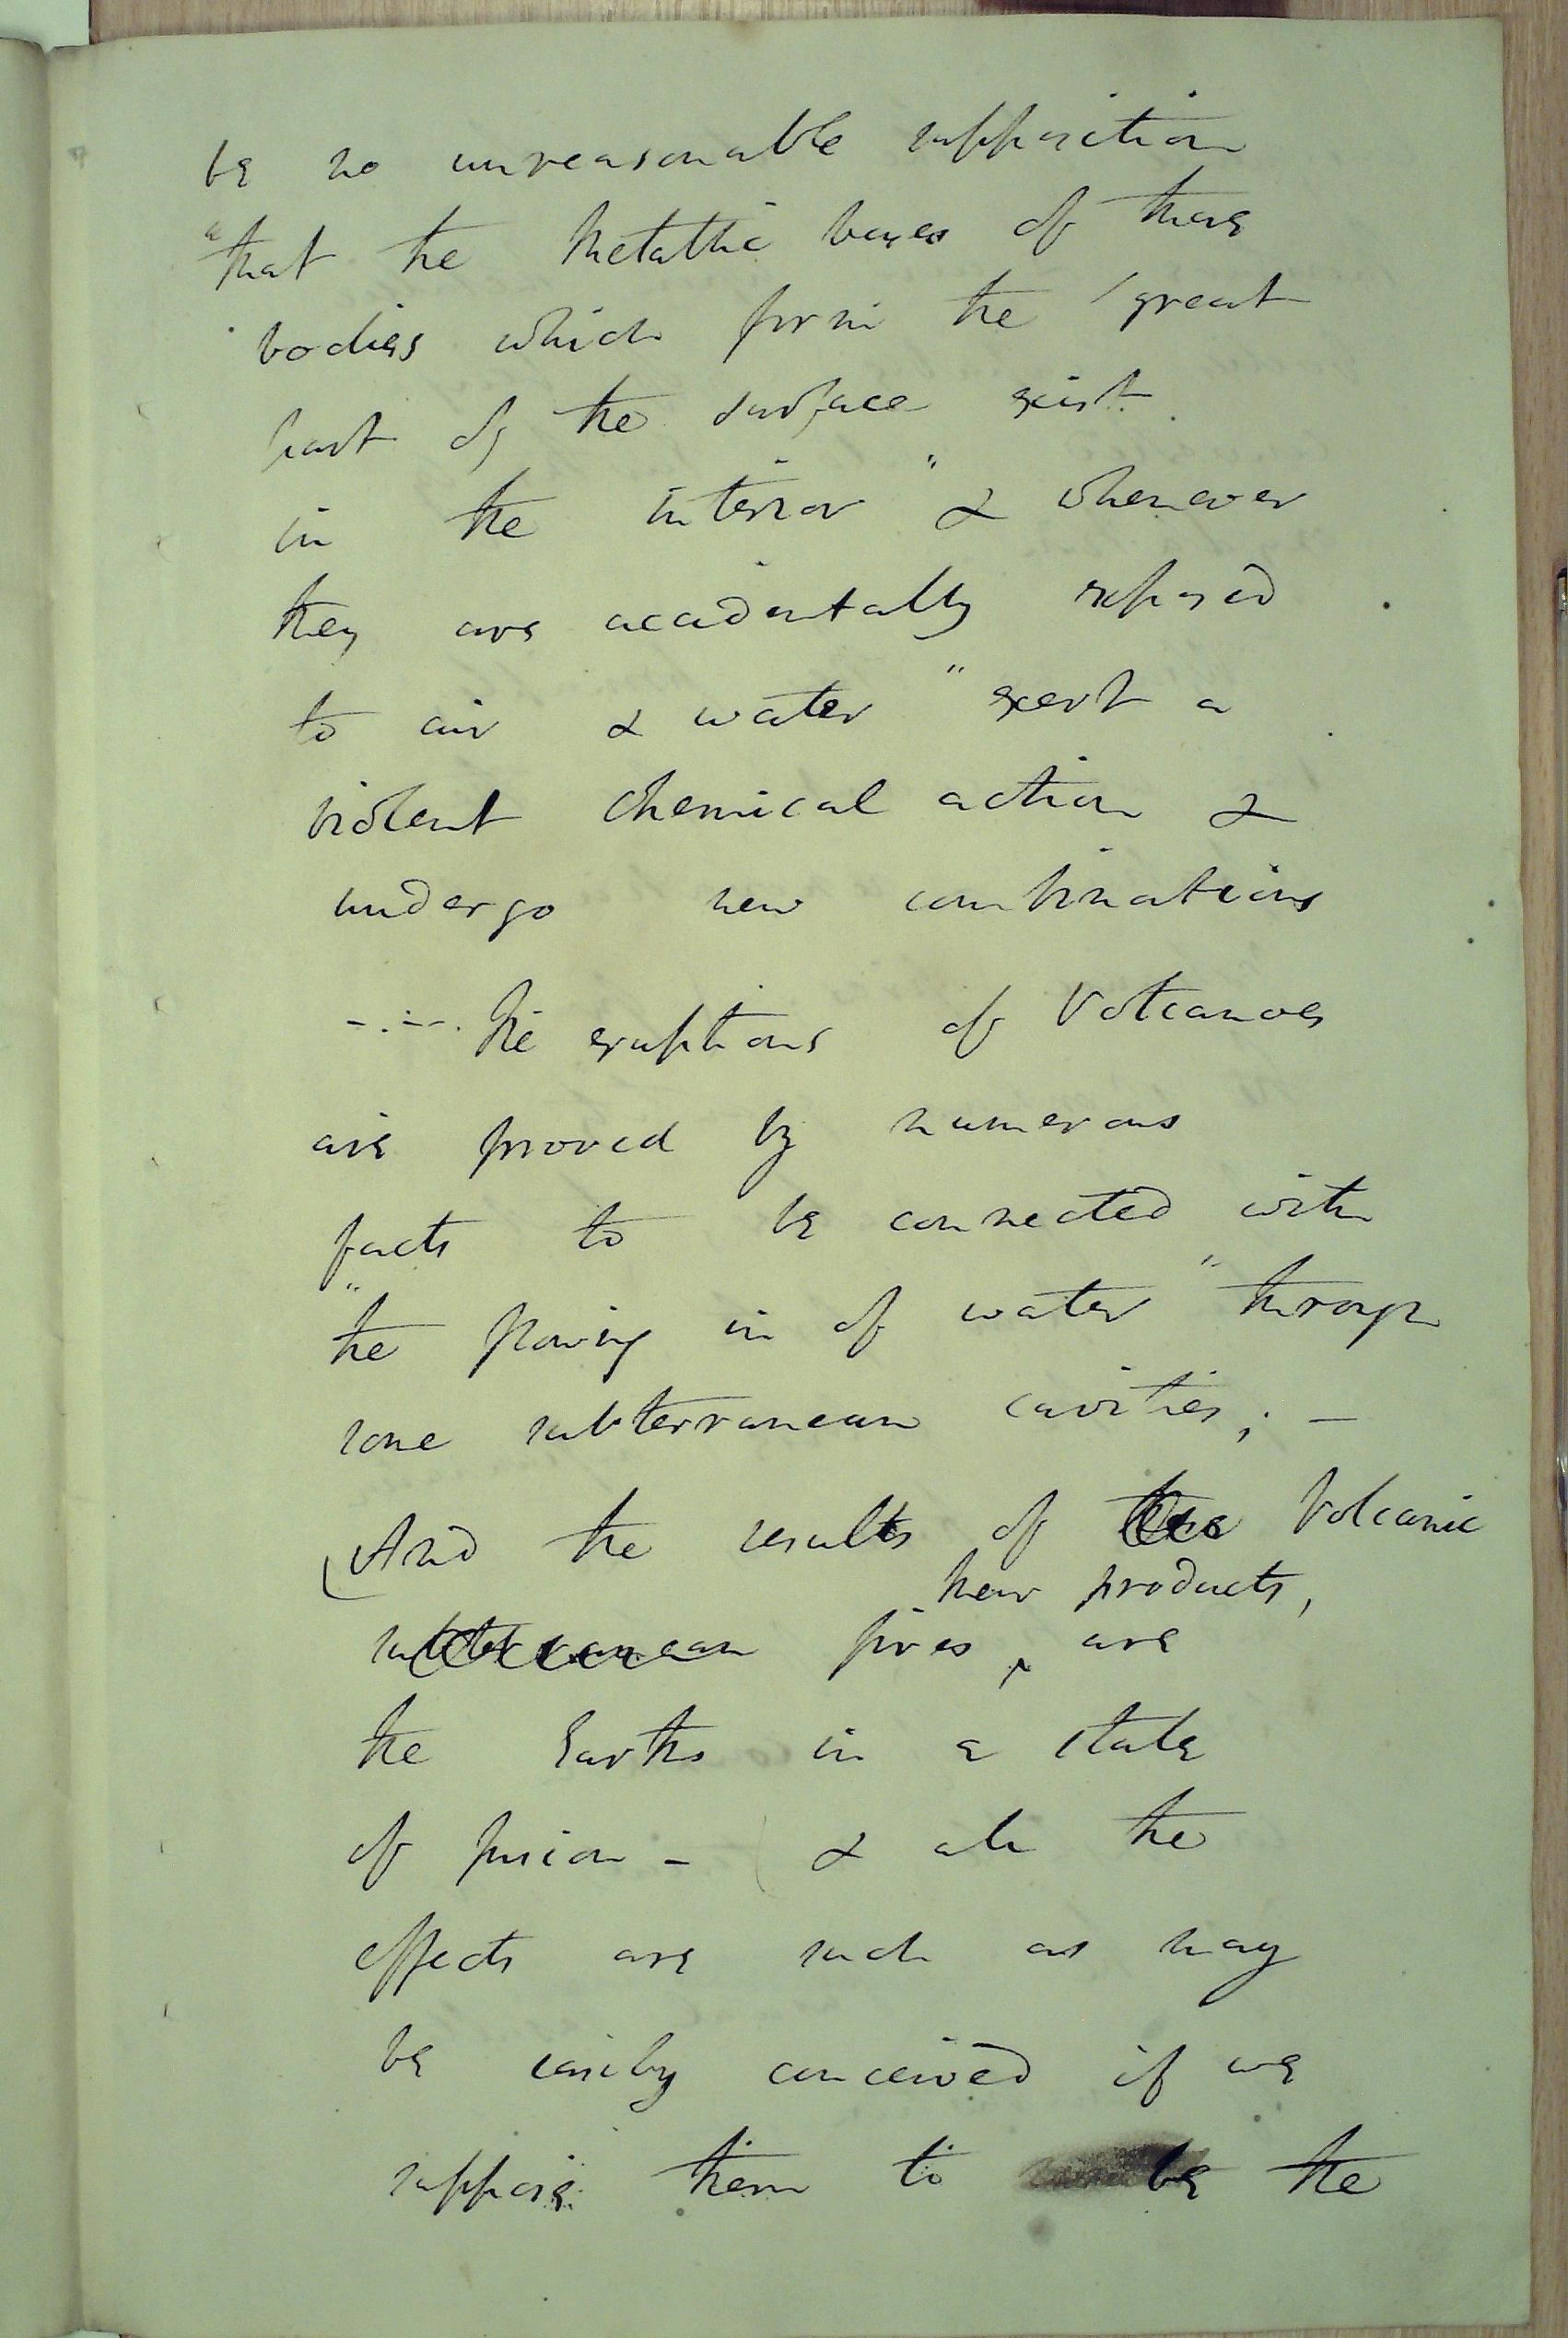 be no unreasonable supposition
"that the Metallic bases of these
bodies which form the great
part of the surface exist
in the interior" & whenever
they are accidentally exposed
to air & water "exert a
violent chemical action &
undergo new combinations
-.-. The eruptions of Volcanoes
are proved by numerous
facts to be connected with
"the flowing in of water" through
some subterranean cavities; -
And the results of Volcanic
new products,
subterranean fires, are
the Earths in a state
of fusion - & all the
effects are such as may
be easily conceived if we
suppose them to be the